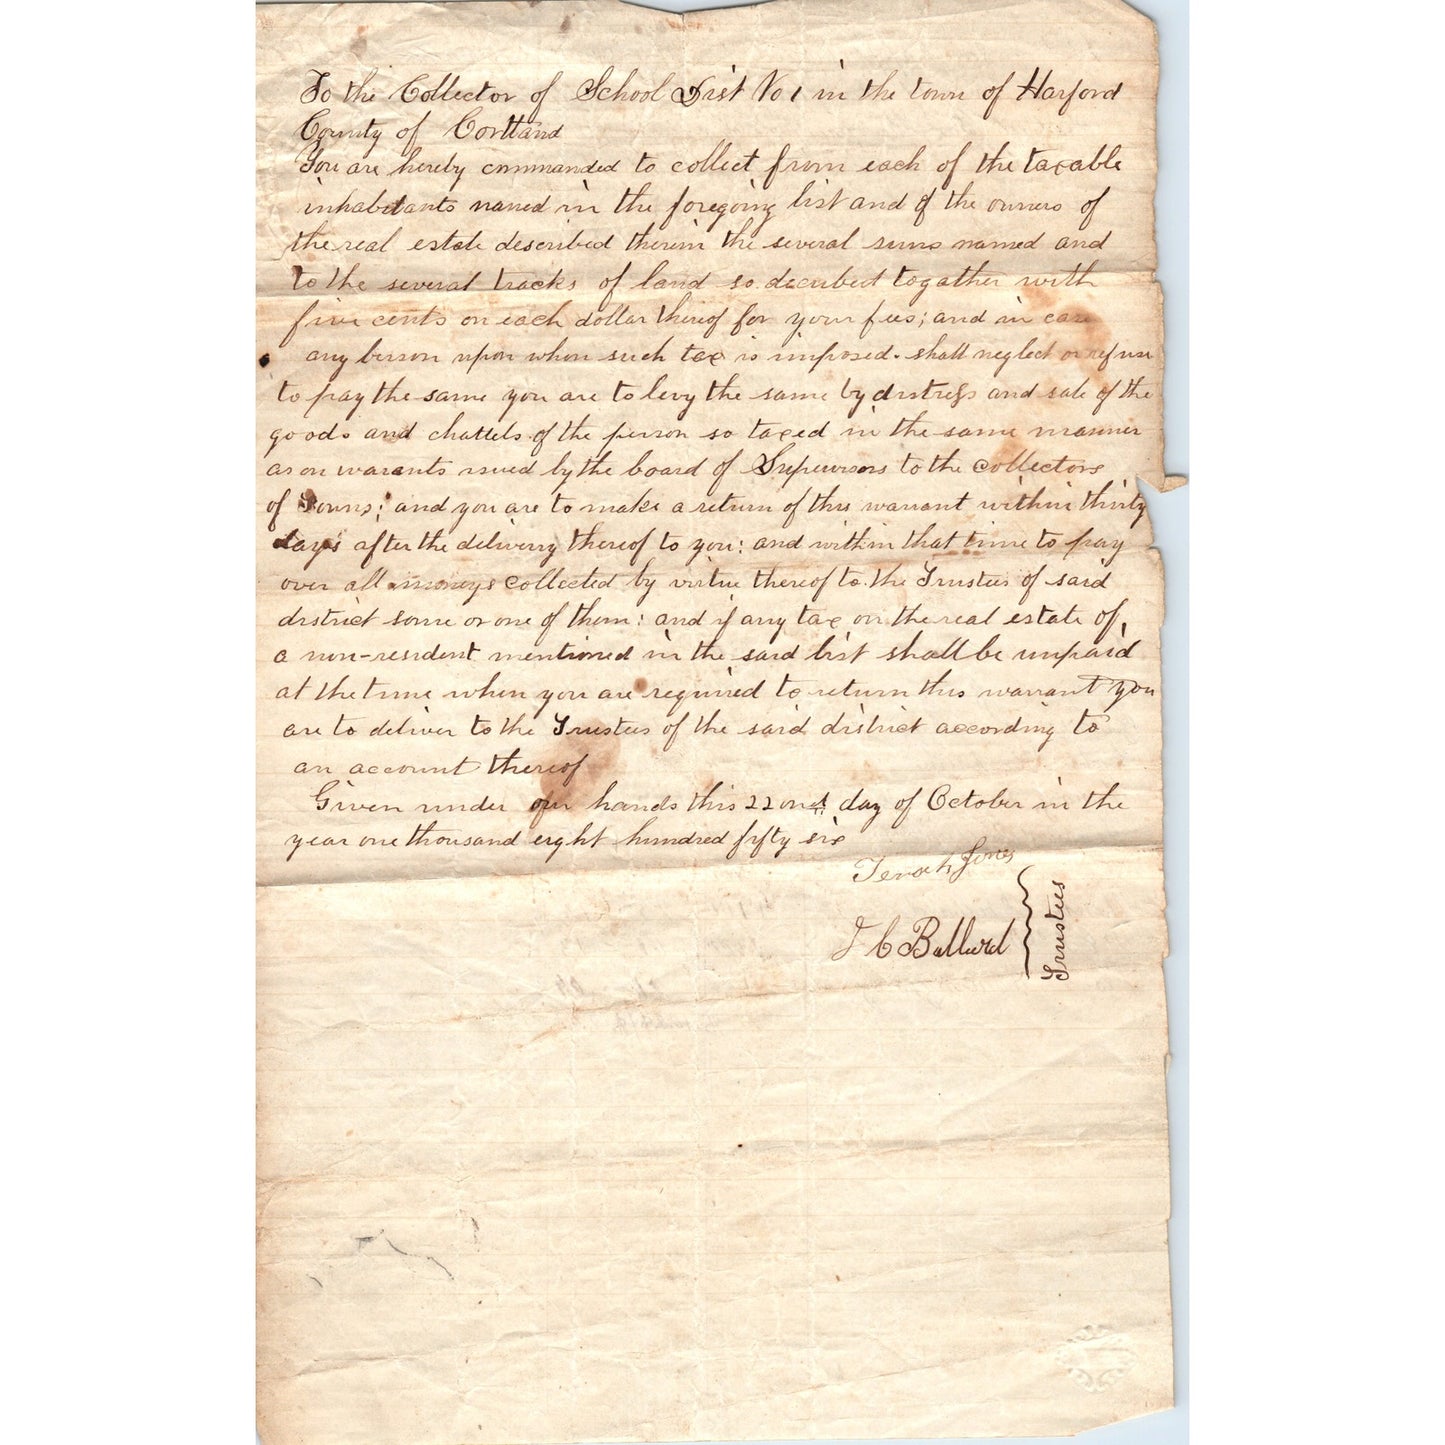 To the Collector of School Dist No 1 in the town of Harford
County of Cortland
You are hereby commanded to collect from each of the taxable
inhabitants named in the foregoing list and of the owners of
the real estate described therein the several sums named and
to the several tracks of land so decribed together with
five cents on each dollar thereof for your fees; and in case
any person upon whom such tax is imposed shall neglect or refuse
to pay the same you are to levy the same by distress and sale of the
goods and chattels of the person so taxed in the same manner
as on warants issued by the board of Supervisors to the collectors
of Towns; and you are to make a return of this warrant within thirty
days after the delivery thereof to you: and within that time to pay
over all moneys collected by virtue thereof to the Trustees of said
district some or one of them: and if any tax on the real estate of
a non-resident mentioned in the said list shall be unpaid
at the time when you are required to return this warrant you
are to deliver to the Trustees of the said district according to
an account thereof
Given under our hands this 22ond day of October in the
year one thousand eight hundred fifty six
Jones
J C Ballard
Trustees